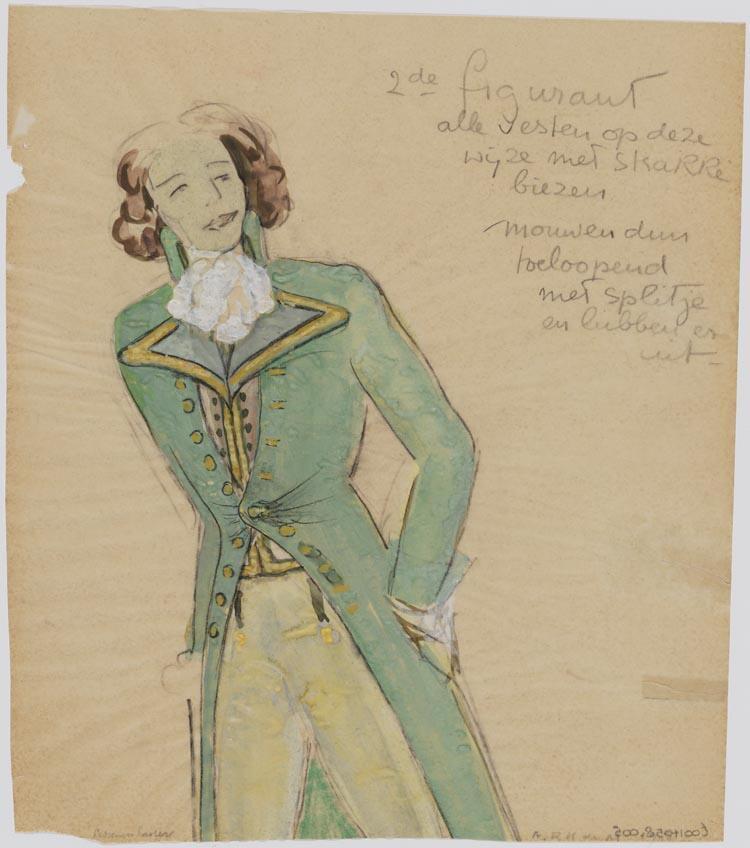 2de figurant
alle vesten op deze
wijze met skarre
biezen
mouwen dun
toeloopend
met splitje
en lubben er
uit